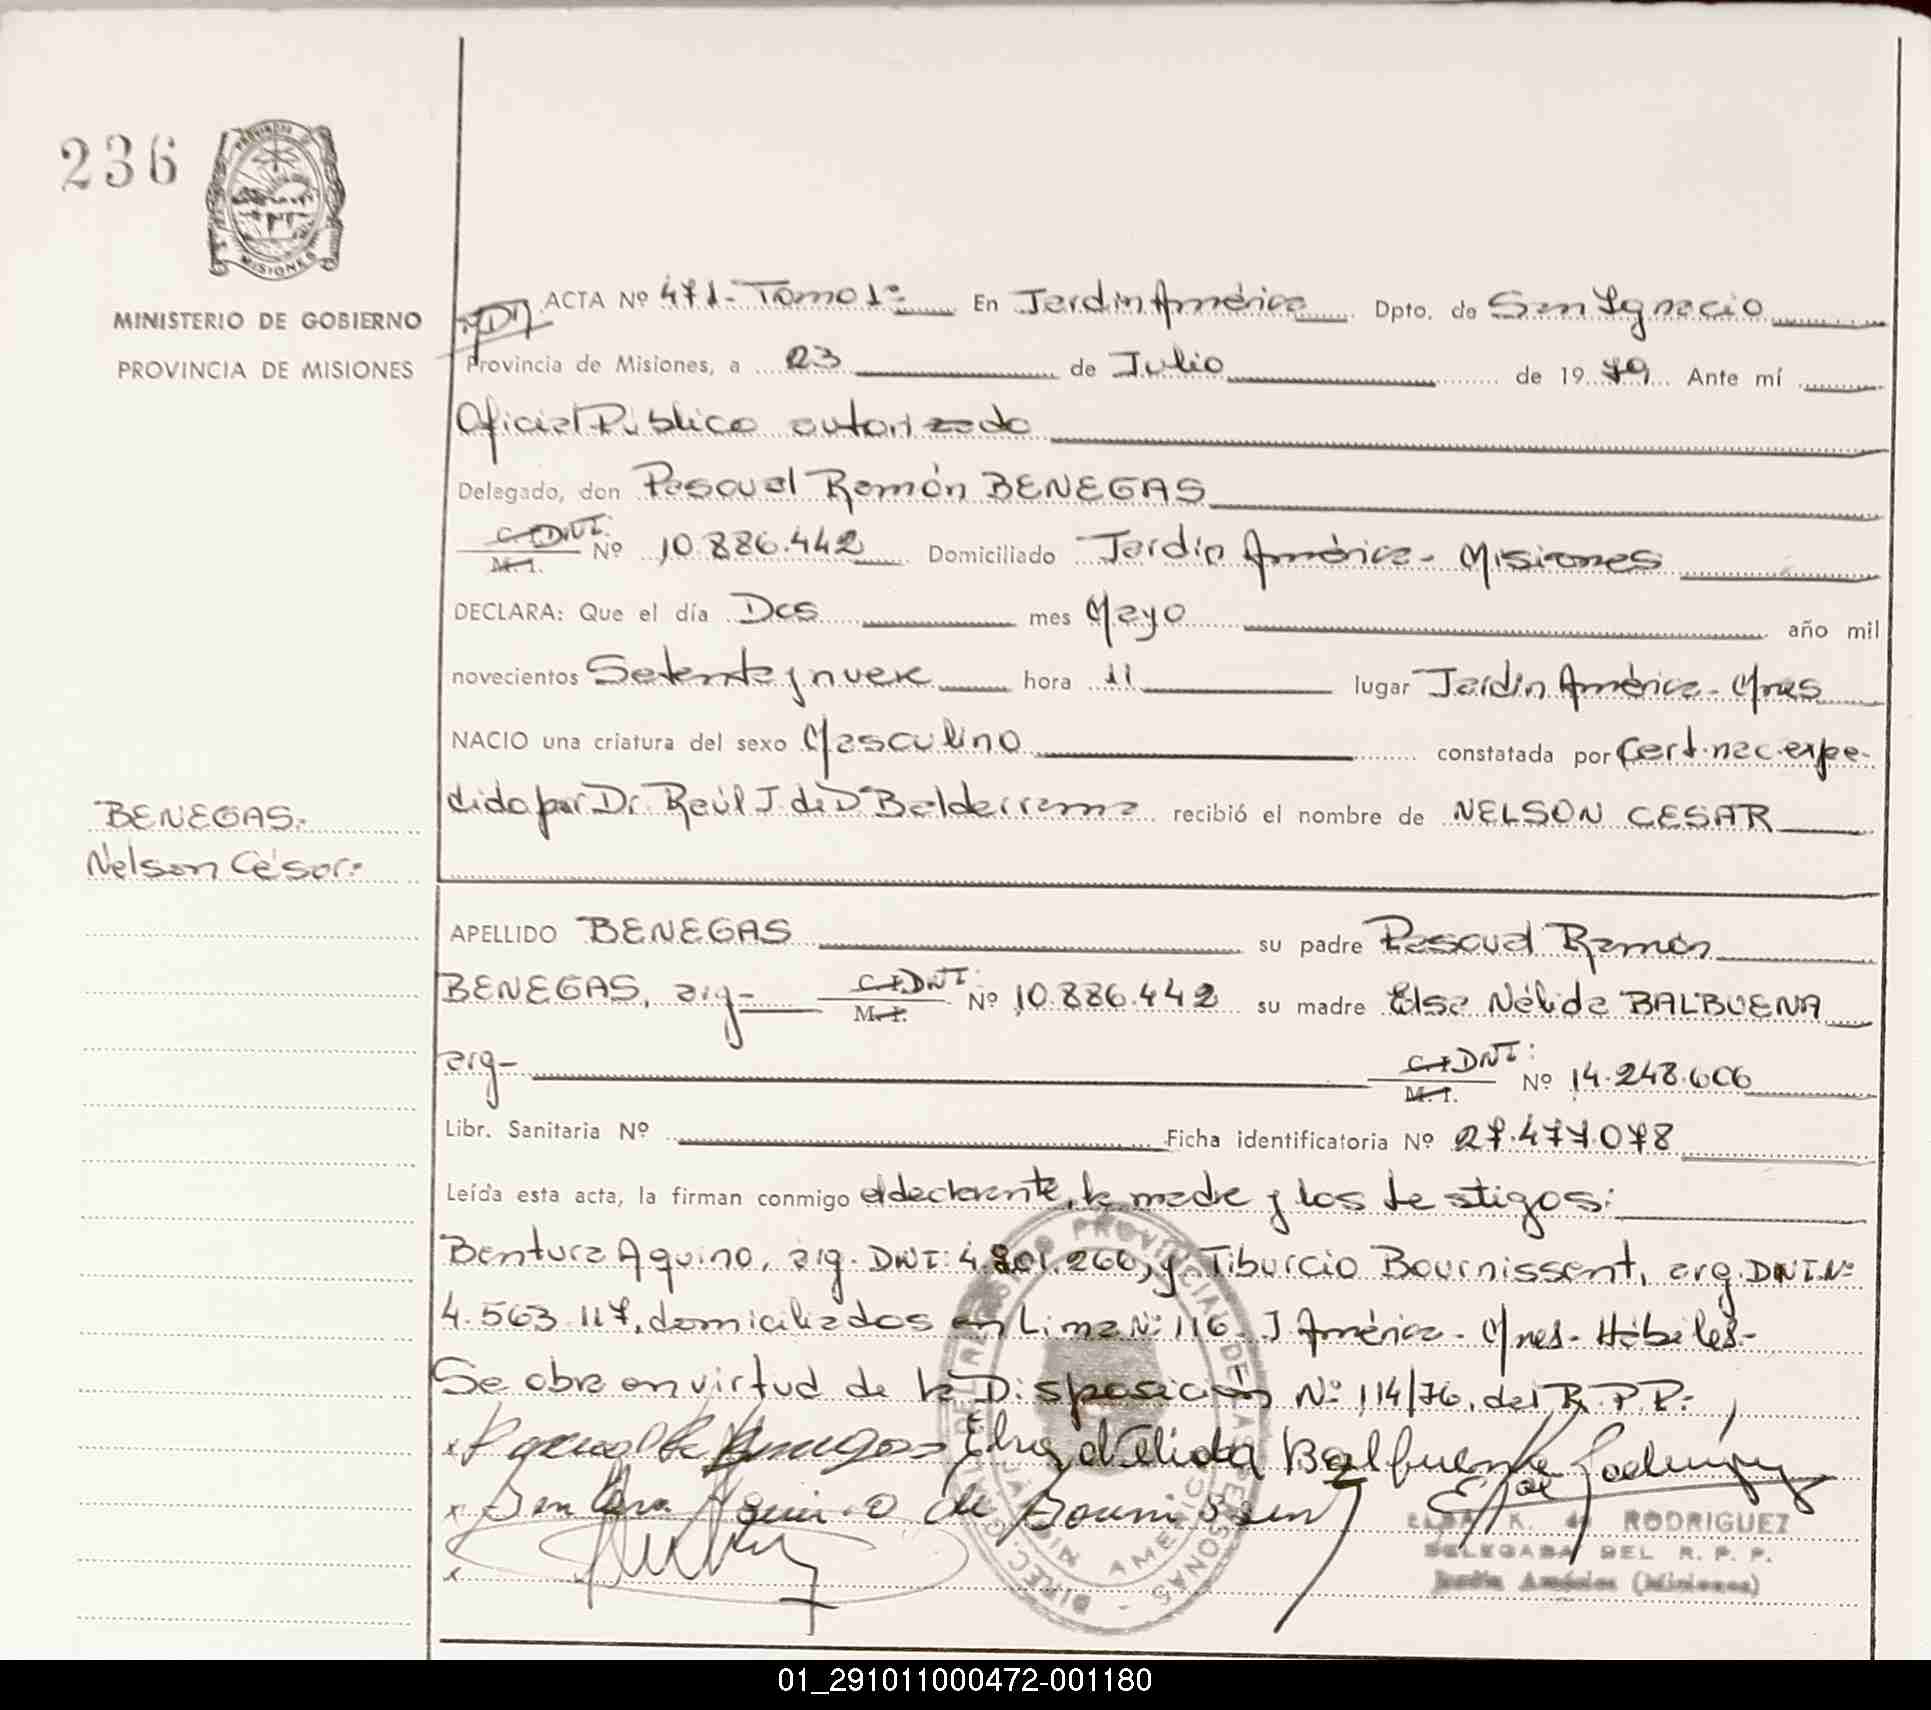 236
PROVINCIA DE
MISIONES
MINISTERIO DE GOBIERNO
PROVINCIA DE MISIONES
ACTA Nº 471- Tomo 1º En Jardín América Dpto. de San Ignacio
Provincia de Misiones, a 23 de Julio de 1979 Ante mí
Oficial Público autorizado
Delegado, don Pascual Ramón BENEGAS
C.I. DNI. M.I. Nº 10.886.442 Domiciliado Jardín América - Misiones
DECLARA: Que el día Dos mes Mayo año mil
novecientos Setenta y nueve hora 11 lugar Jardín América - Mnes
NACIO una criatura del sexo Masculino constatada por Cert. nac. expe-
dido por Dr. Raúl J. de D. Balderrama recibió el nombre de NELSON CESAR
BENEGAS.
Nelson César.
APELLIDO BENEGAS su padre Pascual Ramón
BENEGAS, arg- C.I. DNI. M.I. Nº 10.886.442 su madre Elsa Nélida BALBUENA
arg- C.I. DNI: M.I. Nº 14.248.606
Libr. Sanitaria Nº Ficha identificatoria Nº 27.477.078
Leída esta acta, la firman conmigo el declarante, la madre y los testigos:
Bentura Aquino, arg. DNI: 4.801.266, y Tiburcio Bournissent, arg. DNI. Nº
4.563.117, domiciliados en Lima Nº 116 J. América - Mnes - Hábiles -
Se obra en virtud de la Disposición Nº 114/76, del R.P.P.
x Pascual R Benegas Elsa Nelida Balbuena
x Bentura Aquino de Bournissen
x
ELSA K. de RODRIGUEZ
DELEGADA DEL R. P. P.
Jardín América (Misiones)
DIREC. GRAL. DEL REGISTRO PROVINCIAL DE LAS PERSONAS
JARDIN AMERICA
01_291011000472-001180